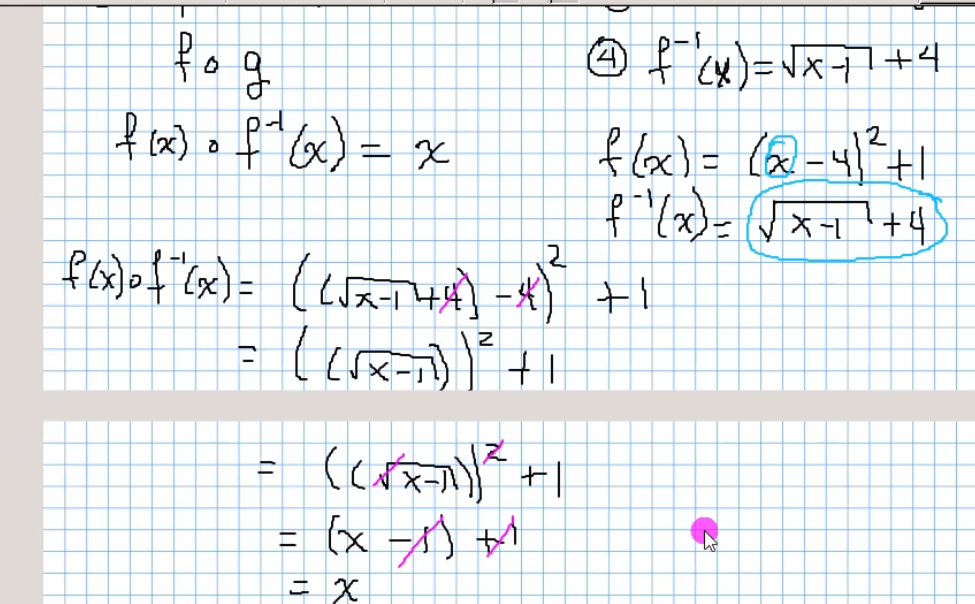 f ∘ g
④ f⁻¹(x) = √(x-1) + 4
f(x) ∘ f⁻¹(x) = x
f(x) = (x - 4)² + 1
f⁻¹(x) = √(x-1) + 4
f(x) ∘ f⁻¹(x) = ((√(x-1) + 4) - 4)² + 1
= ((√(x-1)))² + 1
= ((√(x-1)))² + 1
= (x - 1) + 1
= x